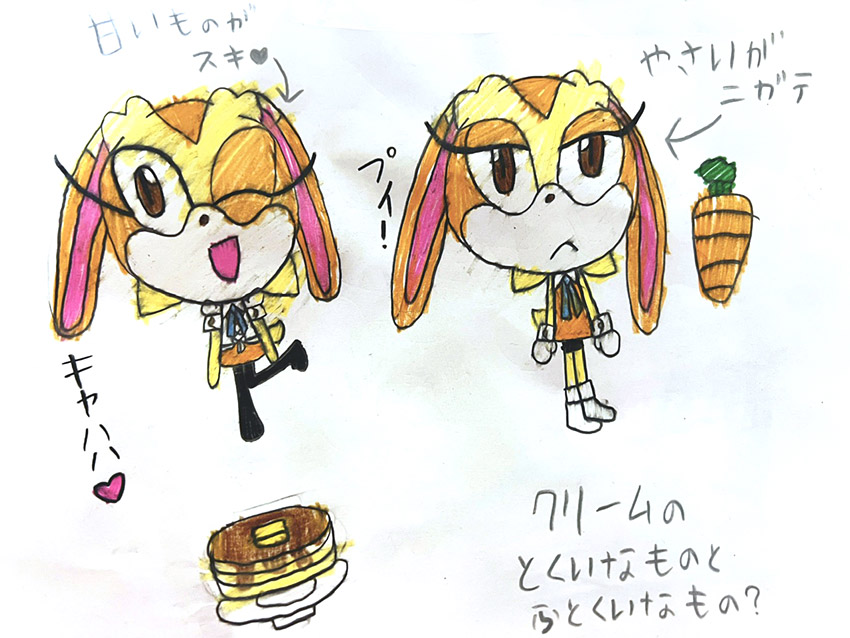 甘いものが
スキ♥
やさいが
ニガテ
プイ!
キャハハ♥
クリームの
とくいなものと
ふとくいなもの?